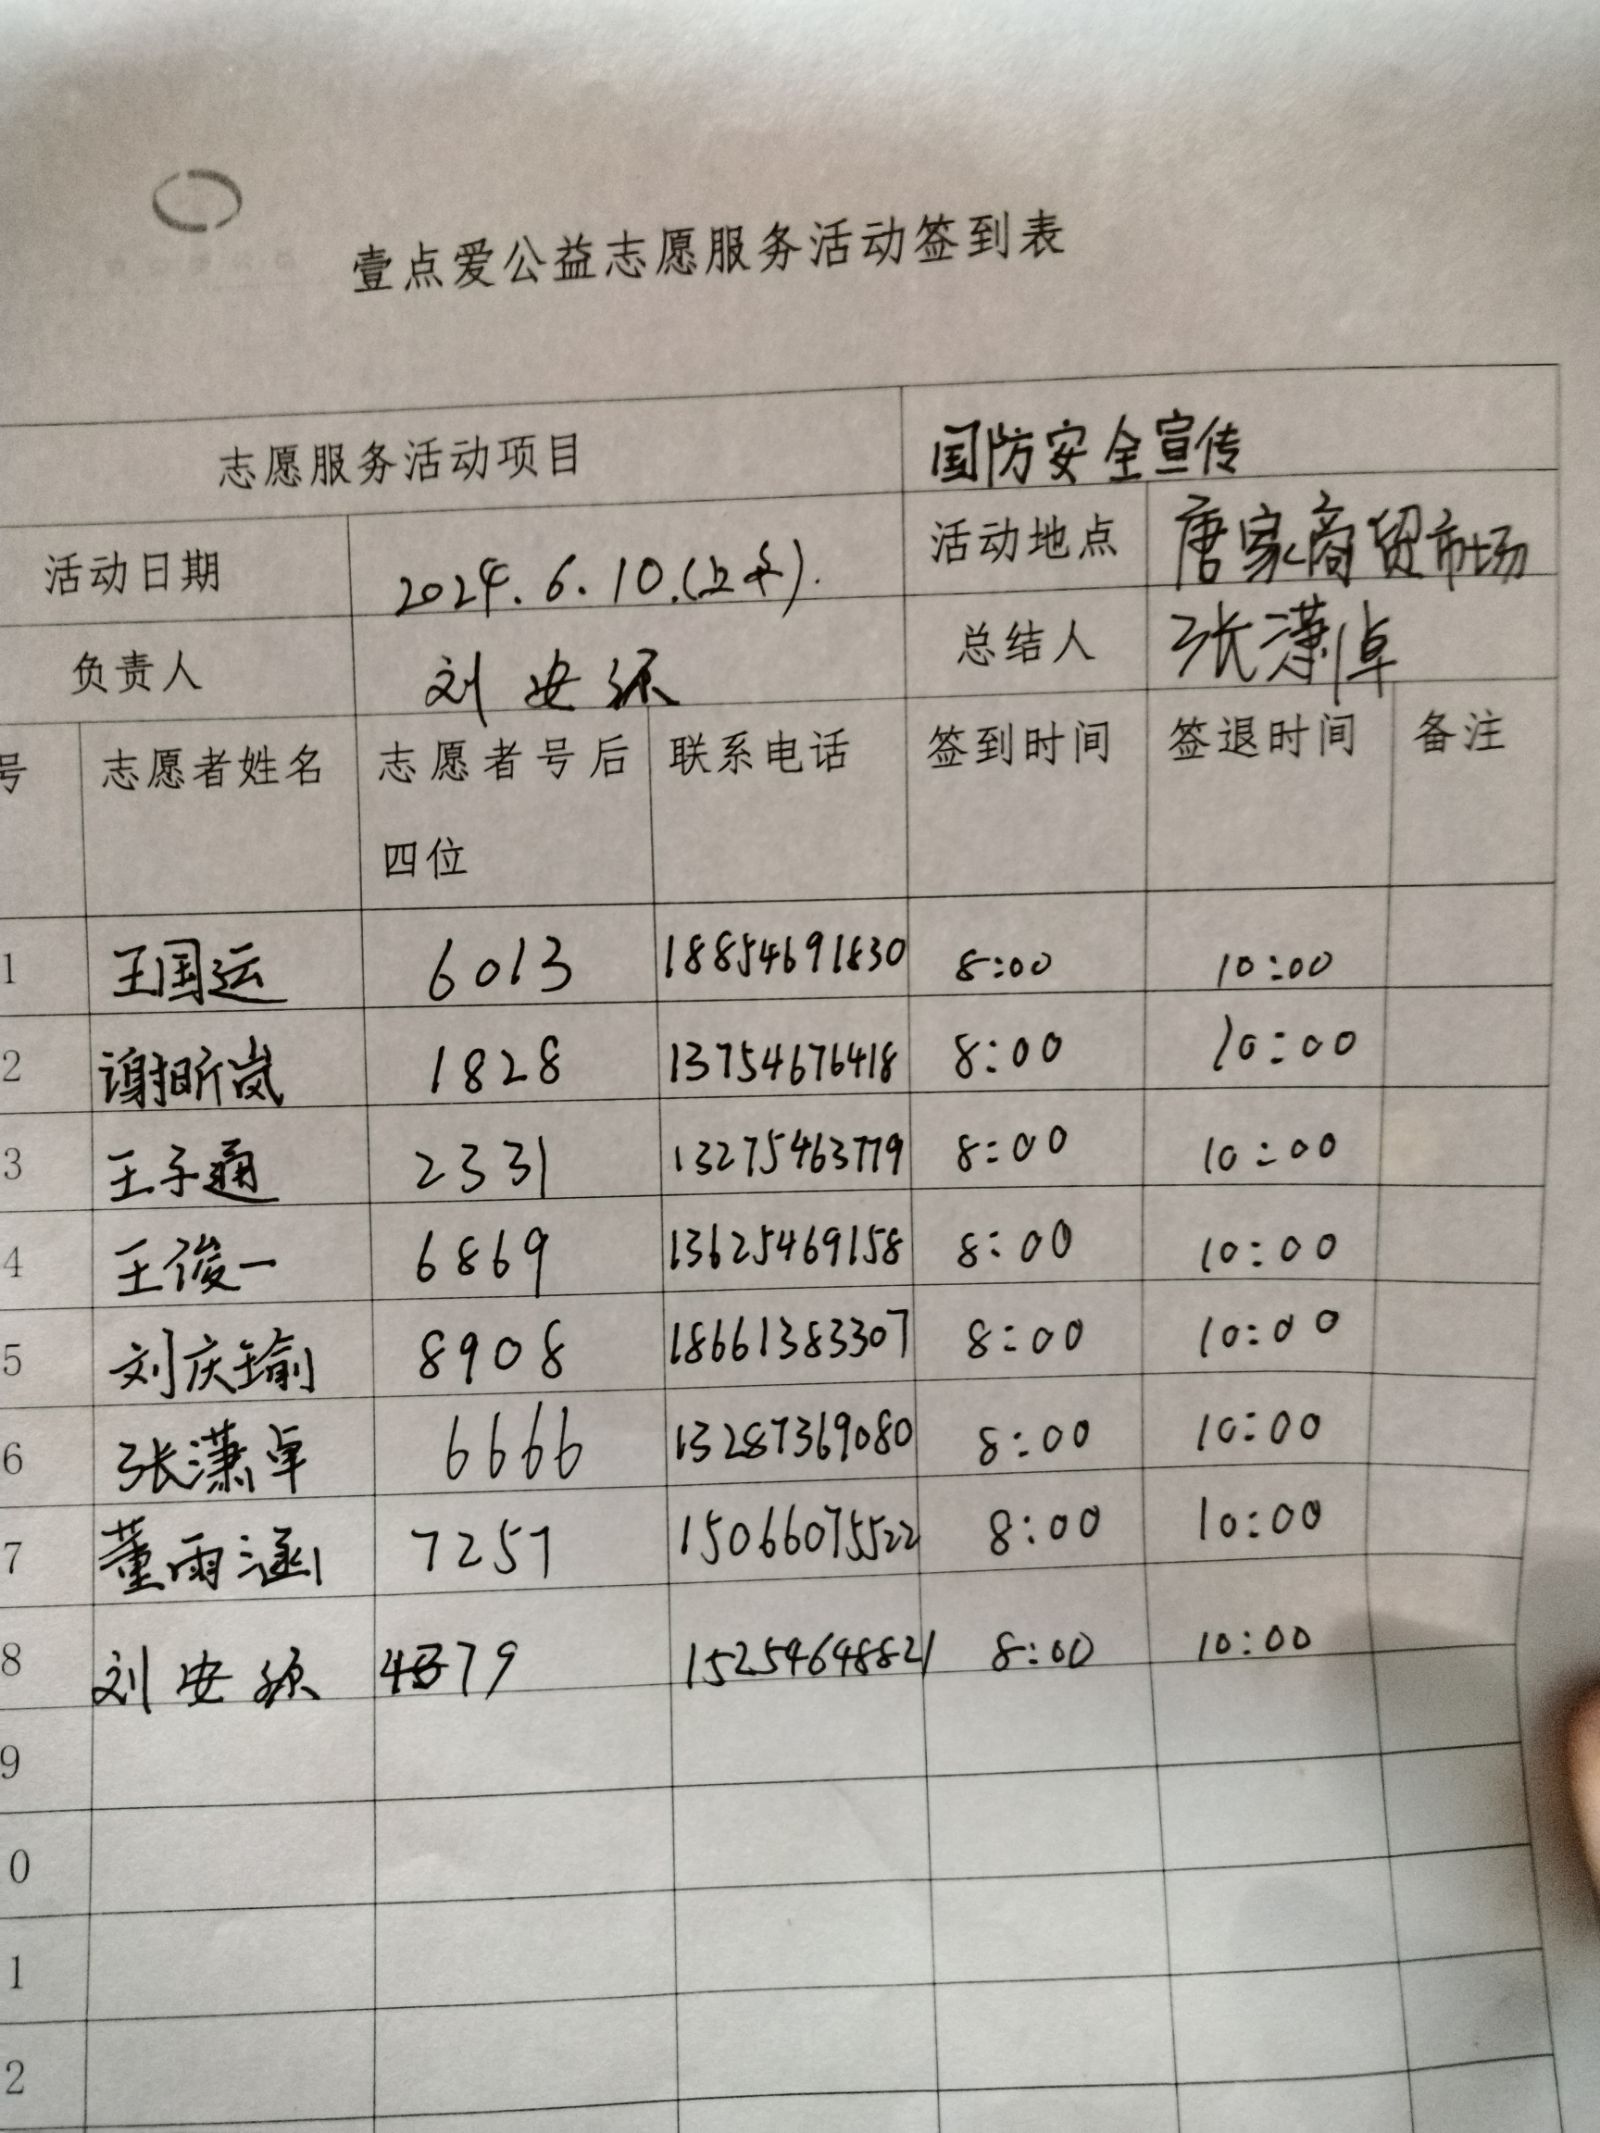 壹点爱公益志愿服务活动签到表
志愿服务活动项目 国防安全宣传
活动日期 2024.6.10.(上午). 活动地点 唐家商贸市场
负责人 刘安源 总结人 张潇倬
号 志愿者姓名 志愿者号后四位 联系电话 签到时间 签退时间 备注
1 王国运 6013 18854691830 8:00 10:00
2 谢昕岚 1828 13754676418 8:00 10:00
3 王子通 2331 13275463779 8:00 10:00
4 王俊一 6869 13625469158 8:00 10:00
5 刘庆瑜 8908 18661383307 8:00 10:00
6 张潇卓 6666 13287369080 8:00 10:00
7 董雨涵 7257 15066075522 8:00 10:00
8 刘安源 15254648821 8:00 10:00
9
0
1
2